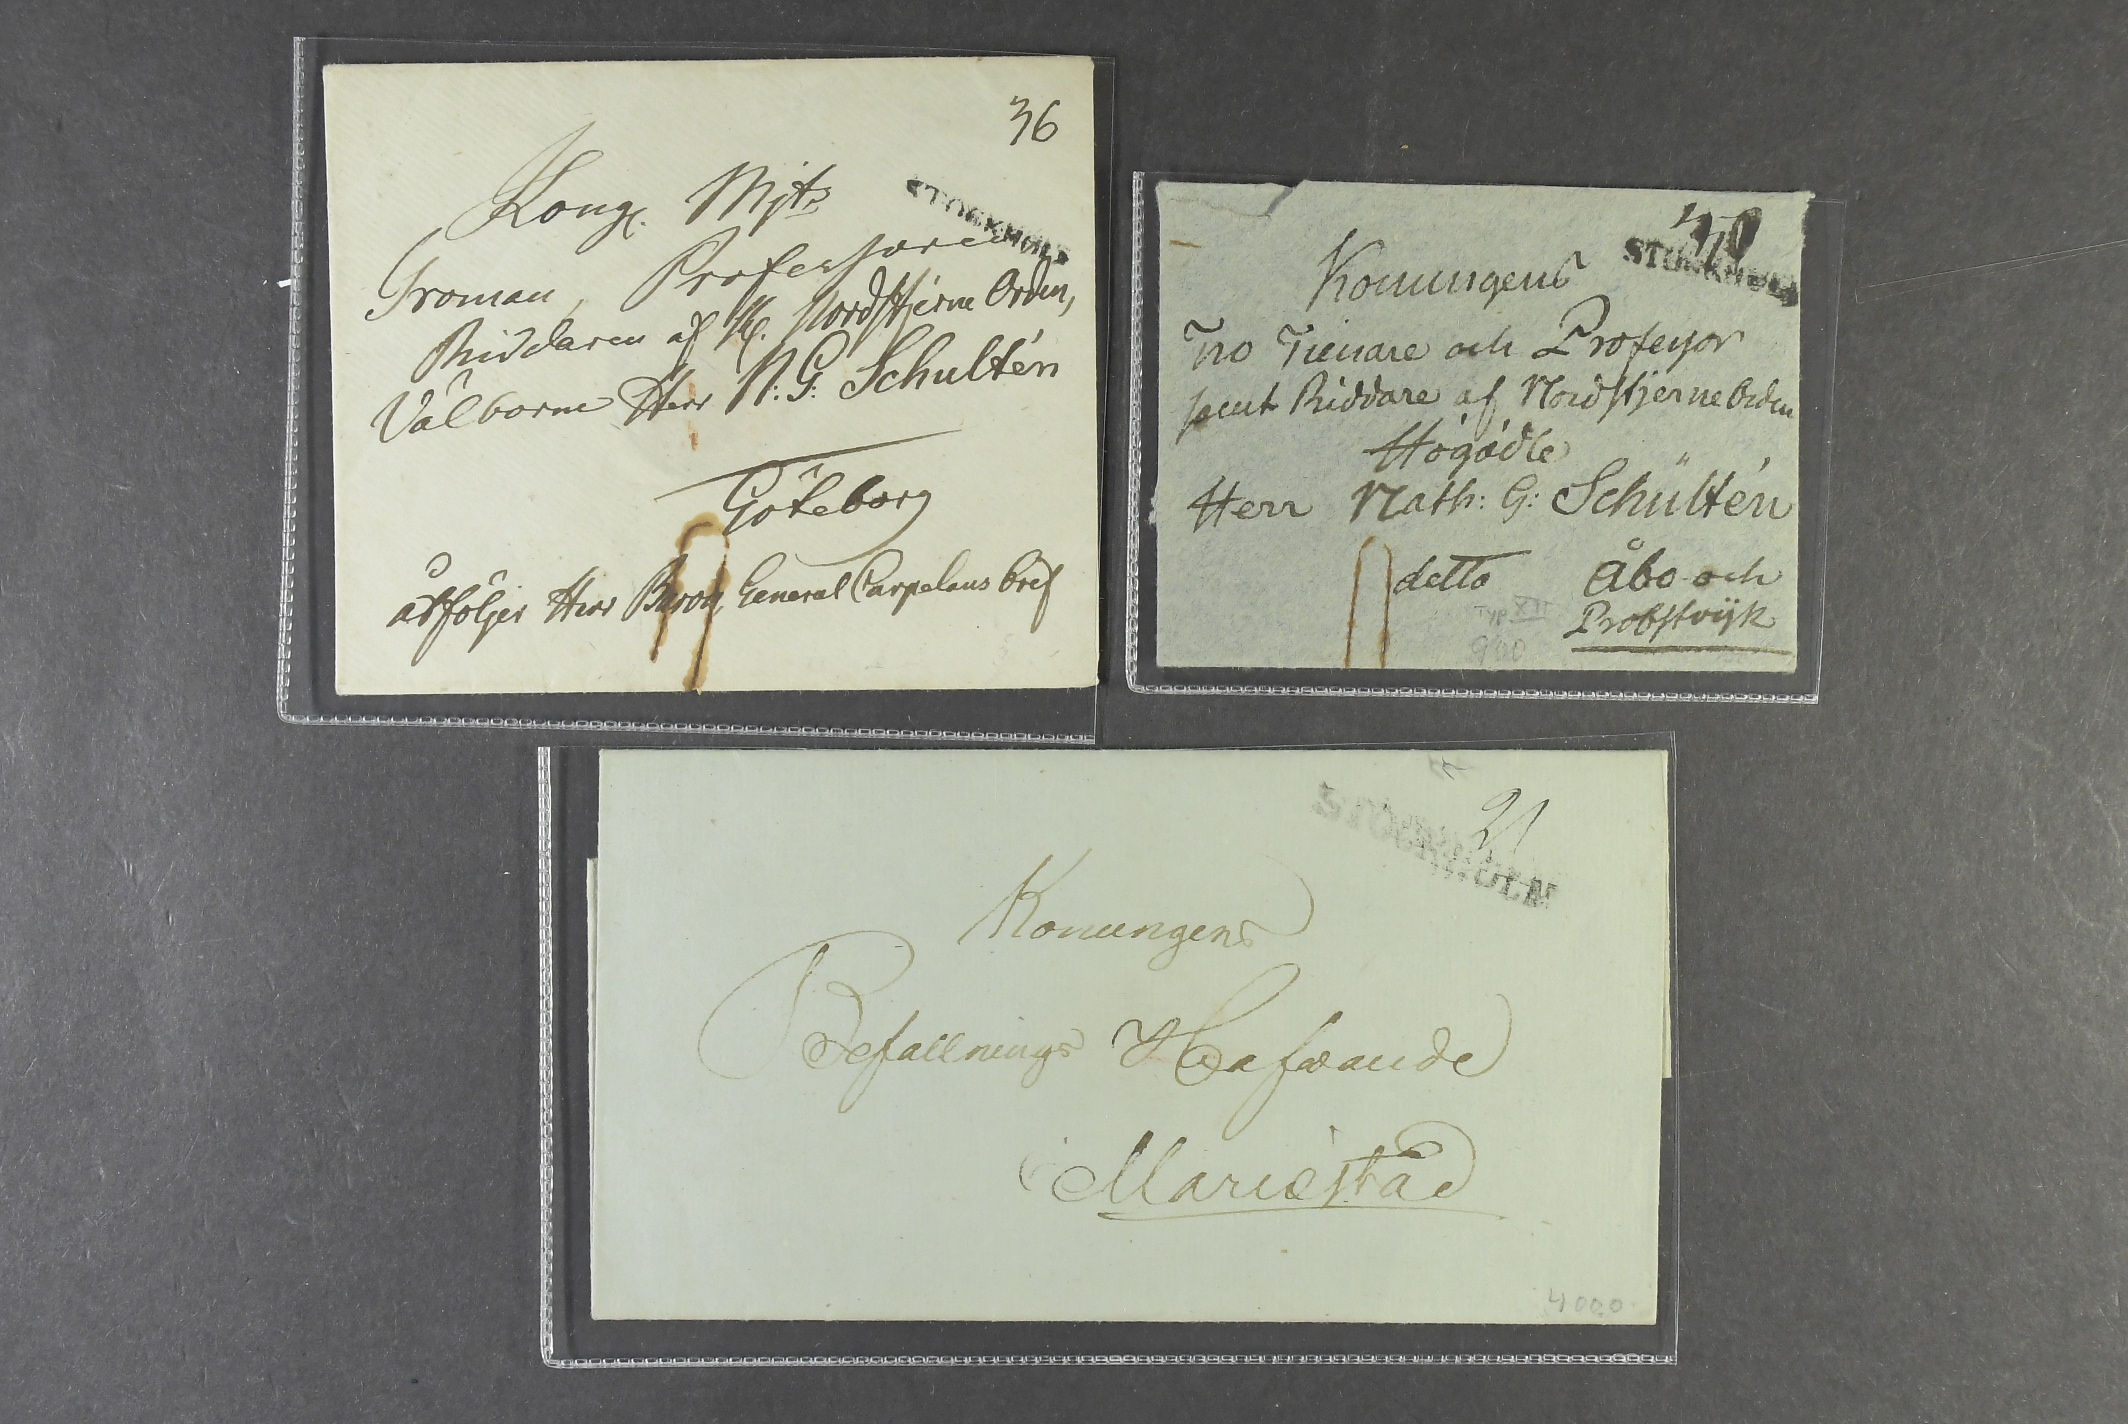 36
STOCKHOLM
Kongl. Mjts
Troman, Professoren
Riddaren af K. Nordstjerne Orden,
Välborne Herr N: G: Schultén
Göteborg
åtföljer Herr Baron General Carpelans bref
STOCKHOLM
Konungens
Tro Tienare och Professor
samt Riddare af Nordstjerne Orden
Högädle
Herr Nath: G: Schultén
detto Åbo och
Probstvijk
Typ XII
900
21
STOCKHOLM
Konungens
Befallnings Hafvande
Mariæstad
4000